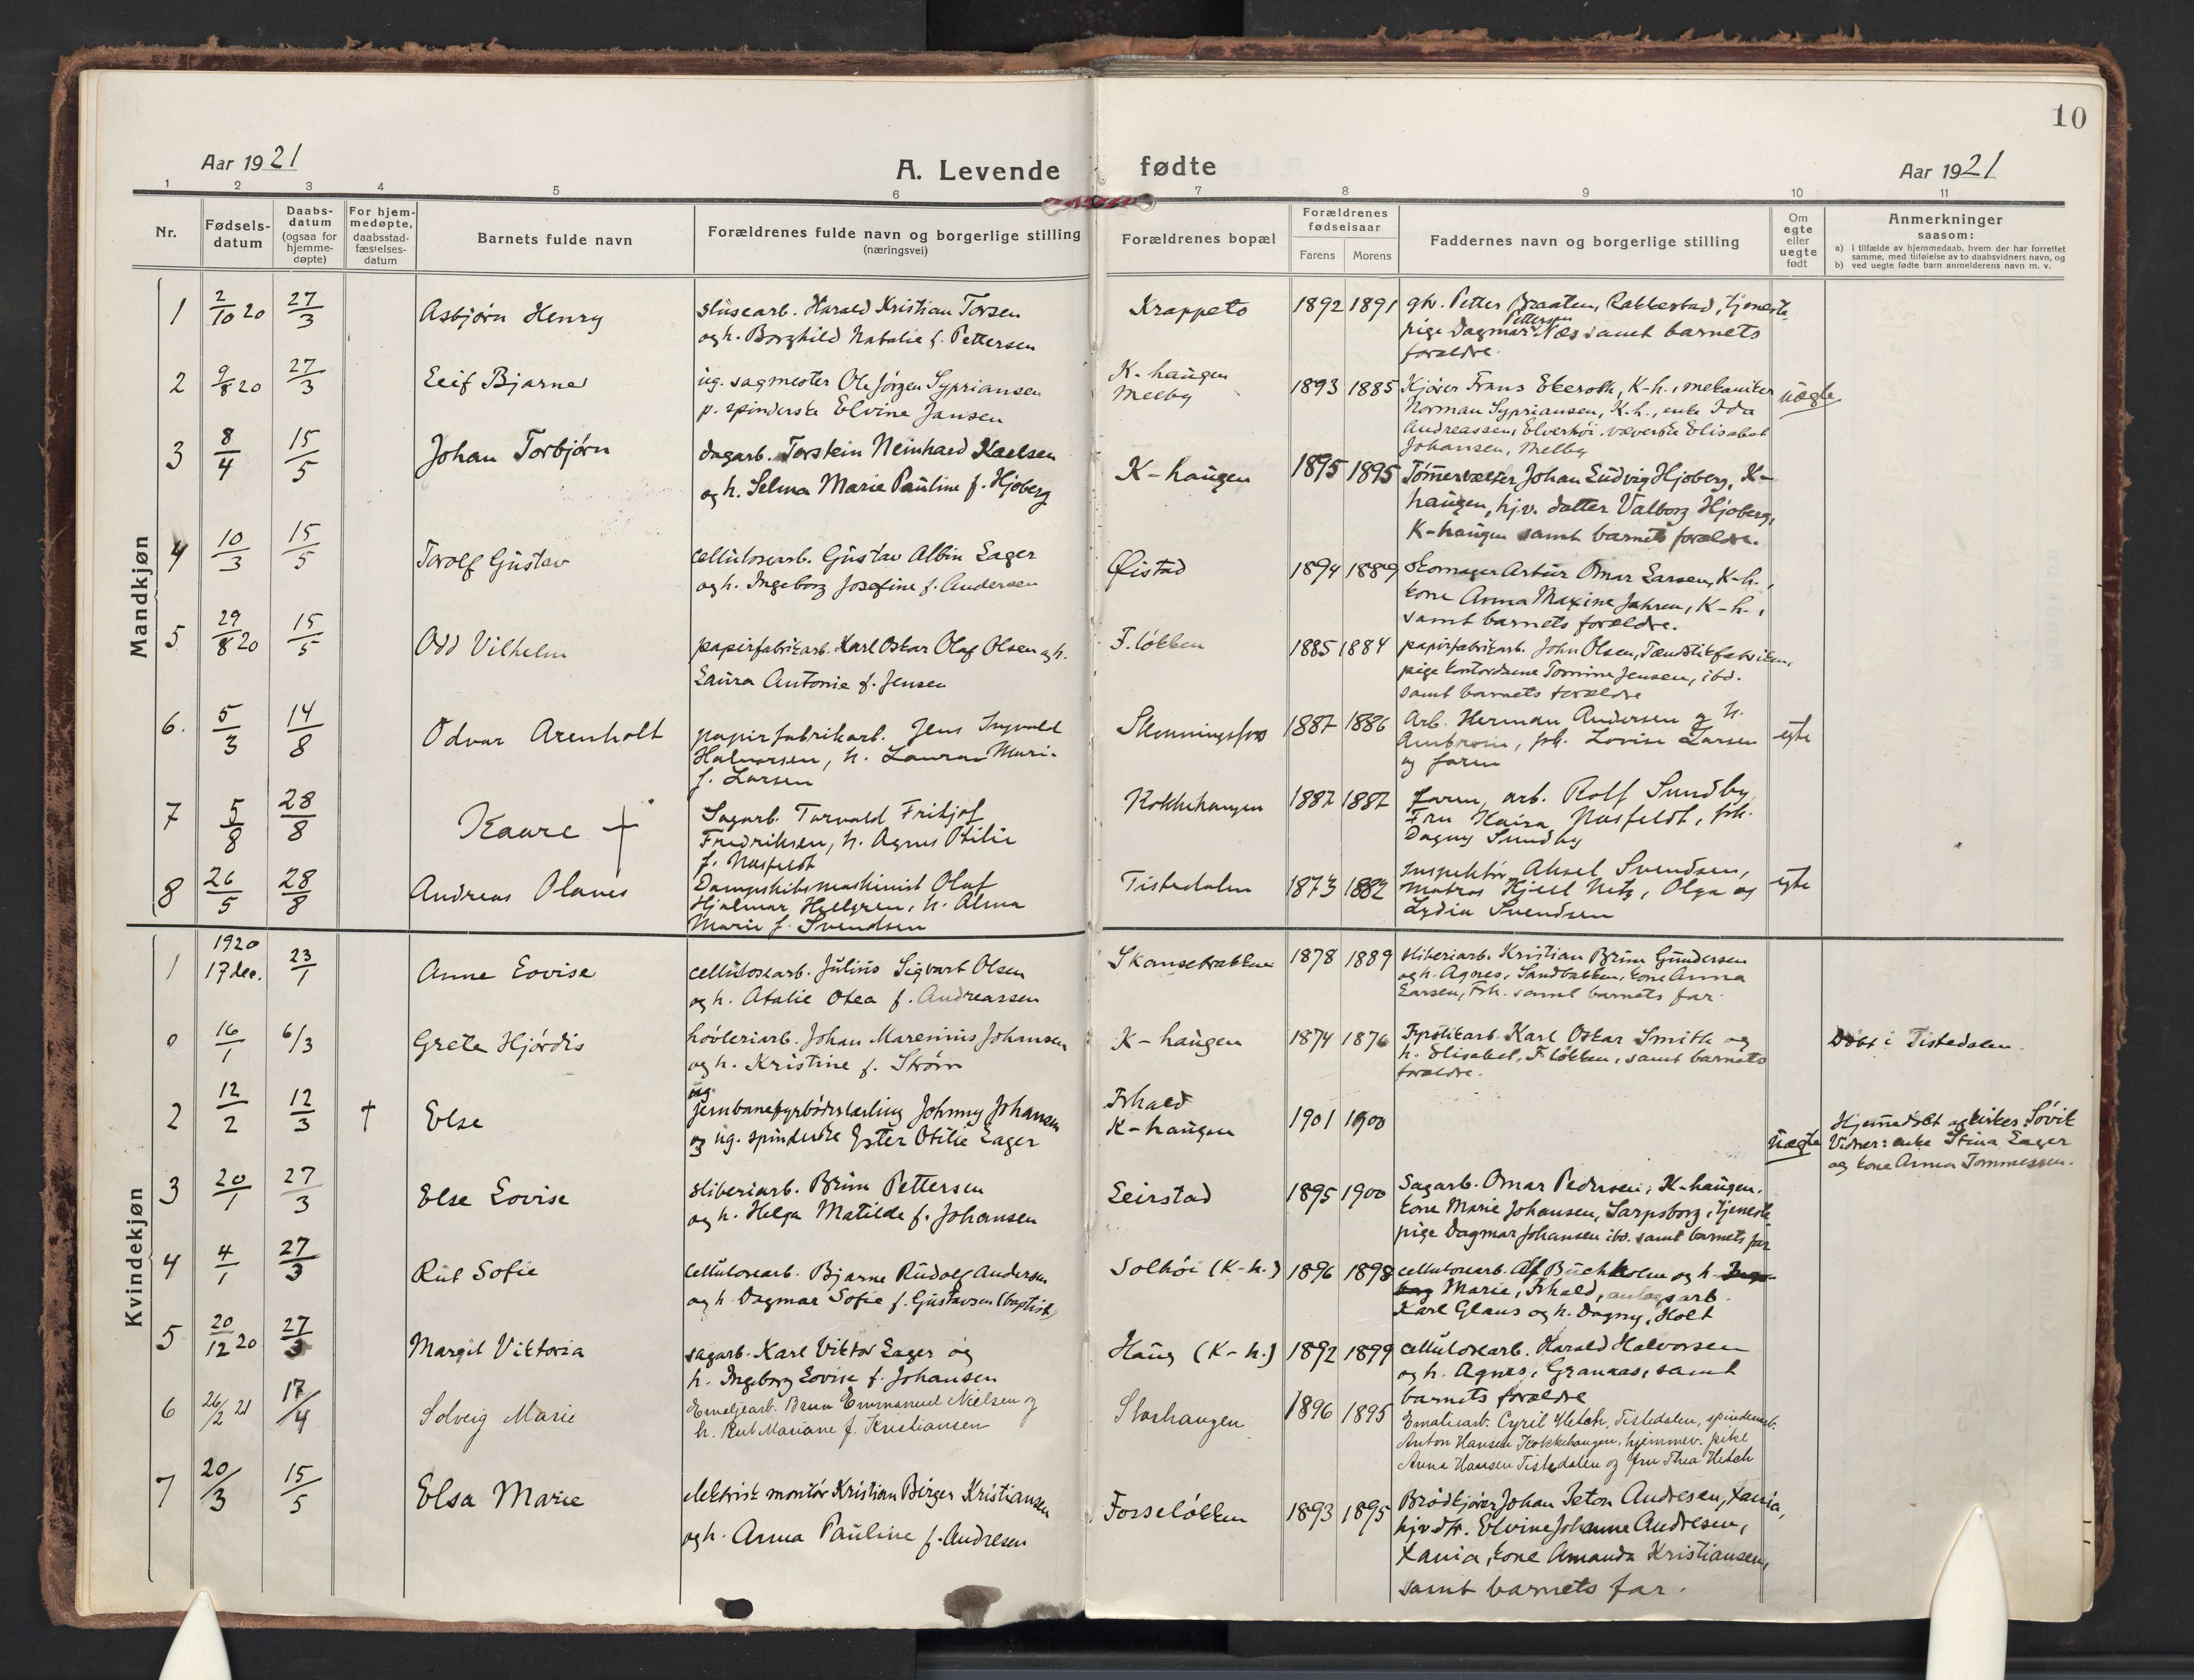 10
Aar 1921
A. Levende fødte
Aar 1921
1 2 3 4 5 6 7 8 9 10 11
Nr.
Fødsels-
datum
Daabs-
datum
(ogsaa for
hjemme-
døpte)
For hjem-
medøpte,
daabsstad-
fæstelses-
datum
Barnets fulde navn
Forældrenes fulde navn og borgerlige stilling
(næringsvei)
Forældrenes bopæl
Forældrenes
fødselsaar
Farens Morens
Faddernes navn og borgerlige stilling
Om
egte
eller
uegte
født
Anmerkninger
saasom:
a) i tilfælde av hjemmedaab, hvem der har forrettet
samme, med tilføielse av to daabsvidners navn, og
b) ved uegte fødte barn anmelderens navn m. v.
Mandkjøn
1 2/10 20 27/3 Asbjørn Henry
slusearb. Harald Kristian Torsen
og h. Borghild Natalie f. Pettersen
Krappeto 1892 1891
gbr. Petter Braaten, Rakkestad, tjeneste-
pige Dagmar Pettersen Næs samt barnets
forældre.
2 9/8 20 27/3 Leif Bjarne
ug. sagmester Ole Jørgen Sypriansen
p. spinderske Elvine Jansen
K-haugen
Melby
1893 1885
Kjører Frans Ekeroth, K-h., mekaniker
Norman Sypriansen, K.h., enke Ida
Andreassen, Elverhøi, væverske Elisabet
Johansen, Melby
uegte
3 8/4 15/5 Johan Torbjørn
dagarb. Torstein Meinhard Karlsen
og h. Selma Marie Pauline f. Hjoberg
K-haugen 1895 1895
Tømmervælter Johan Ludvig Hjoberg, K-
haugen, hj.v. datter Valborg Hjoberg,
K-haugen samt barnets forældre.
4 10/3 15/5 Torolf Gustav
cellulosearb. Gustav Albin Lager
og h. Ingeborg Josefine f. Andersen
Øistad 1894 1889
Skomager Artur Omar Larsen, K-h.,
kone Anna Maxine Jahren, K-h.,
samt barnets forældre.
5 29/8 20 15/5 Odd Vilhelm
papirfabrikarb. Karl Oskar Olaf Olsen og h.
Laura Antonie f. Jensen
F.løkken 1885 1884
papirfabrikarb. John Olsen, Tændstikfabrikken,
pige kontordame Tomine Jensen, ibd.
samt barnets forældre
6. 5/3 14/8 Odvar Arenholt
papirfabrikarb. Jens Ingvald
Halvorsen, h. Laura Marie
f. Larsen
Skonningsfos 1887 1886
Arb. Herman Andersen og h.
Ambrosia, frk. Lovise Larsen
og faren
egte
7 5/8 28/8 Kaare †
Sagarb. Torvald Fritjof
Fredriksen, h. Agnes Otilie
f. Nusfeldt
Kokkehaugen 1887 1887
Faren, arb. Rolf Sundby,
Fru Kaisa Nusfeldt, frk.
Dagny Sundby
8 26/5 28/8 Andreas Olanes
Dampskibsmaskinist Olaf
Hjalmar Hellgren, h. Alma
Marie f. Svendsen
Tistedalen 1873 1882
Inspektør Aksel Svendsen,
Matros Kjell Netz, Olga og
Lydia Svendsen
egte
Kvindekjøn
1 1920
17 dec. 23/1 Anne Lovise
cellulosearb. Julius Sigvart Olsen
og h. Atalie Otea f. Andreassen
Skansebakken 1878 1889
sliberiarb. Kristian Brun Gundersen
og h. Agnes, Sandbakken, kone Anna
Larsen, Frh. samt barnets far.
0 16/1 6/3 Grete Hjørdis
høvleriarb. Johan Marenius Johansen
og h. Kristine f. Strøm
K-haugen 1874 1876
Fyrstikarb. Karl Oskar Smith og
h. Elisabet, F.løkken, samt barnets
forældre.
Døbt i Tistedalen.
2 12/2 12/3 † Else
ug.
jernbanefyrbøderlærling Johnny Johansen
og ug. spinderske Ester Otilie Lager
Frhald
K-haugen
1901 1900
uegte
Hjemmedøbt av Søvik
Vidner: enke Stina Lager
og kone Anna Tommessen.
3 20/1 27/3 Else Lovise
sliberiarb. Brun Pettersen
og h. Helga Matilde f. Johansen
Leirstad 1895 1900
Sagarb. Omar Pedersen, K-haugen.
kone Marie Johansen, Sarpsborg, tjeneste-
pige Dagmar Johansen ibd. samt barnets far
4 4/1 27/3 Rut Sofie
cellulosearb. Bjarne Rudolf Andersen
og h. Dagmar Sofie f. Gustavsen (baptist)
Solhøi (K-h.) 1896 1898
cellulosearb. Alf Buchholm og h. Inge-
borg Marie, Frhald, anlægsarb.
Karl Glaus og h. Dagny, Holt
5 20/12 20 27/3 Margit Viktoria
sagarb. Karl Viktor Lager og
h. Ingeborg Lovise f. Johansen
Haug (K-h.) 1892 1899
cellulosearb. Harald Halvorsen
og h. Agnes, Granaas, samt
barnets forældre
6 26/2 21 17/4 Solveig Marie
Emaljearb. Brun Emmanuel Nielsen og
h. Rut Mariane f. Kristiansen
Storhaugen 1896 1895
Emaljearb. Cyril Hetch, Tistedalen, spinderiarb.
Anton Hansen Kokkehaugen, hjemmev. pike
Anna Hansen Tistedalen og fru Thea Hetch
7 20/3 15/5 Elsa Marie
elektrisk montør Kristian Birger Kristiansen
og h. Anna Pauline f. Andresen
Forseløkken 1893 1895
Brødkjører Johan Anton Andresen, Xania,
hjv. dtr. Elvine Johanne Andresen,
Xania, kone Amanda Kristiansen,
samt barnets far.